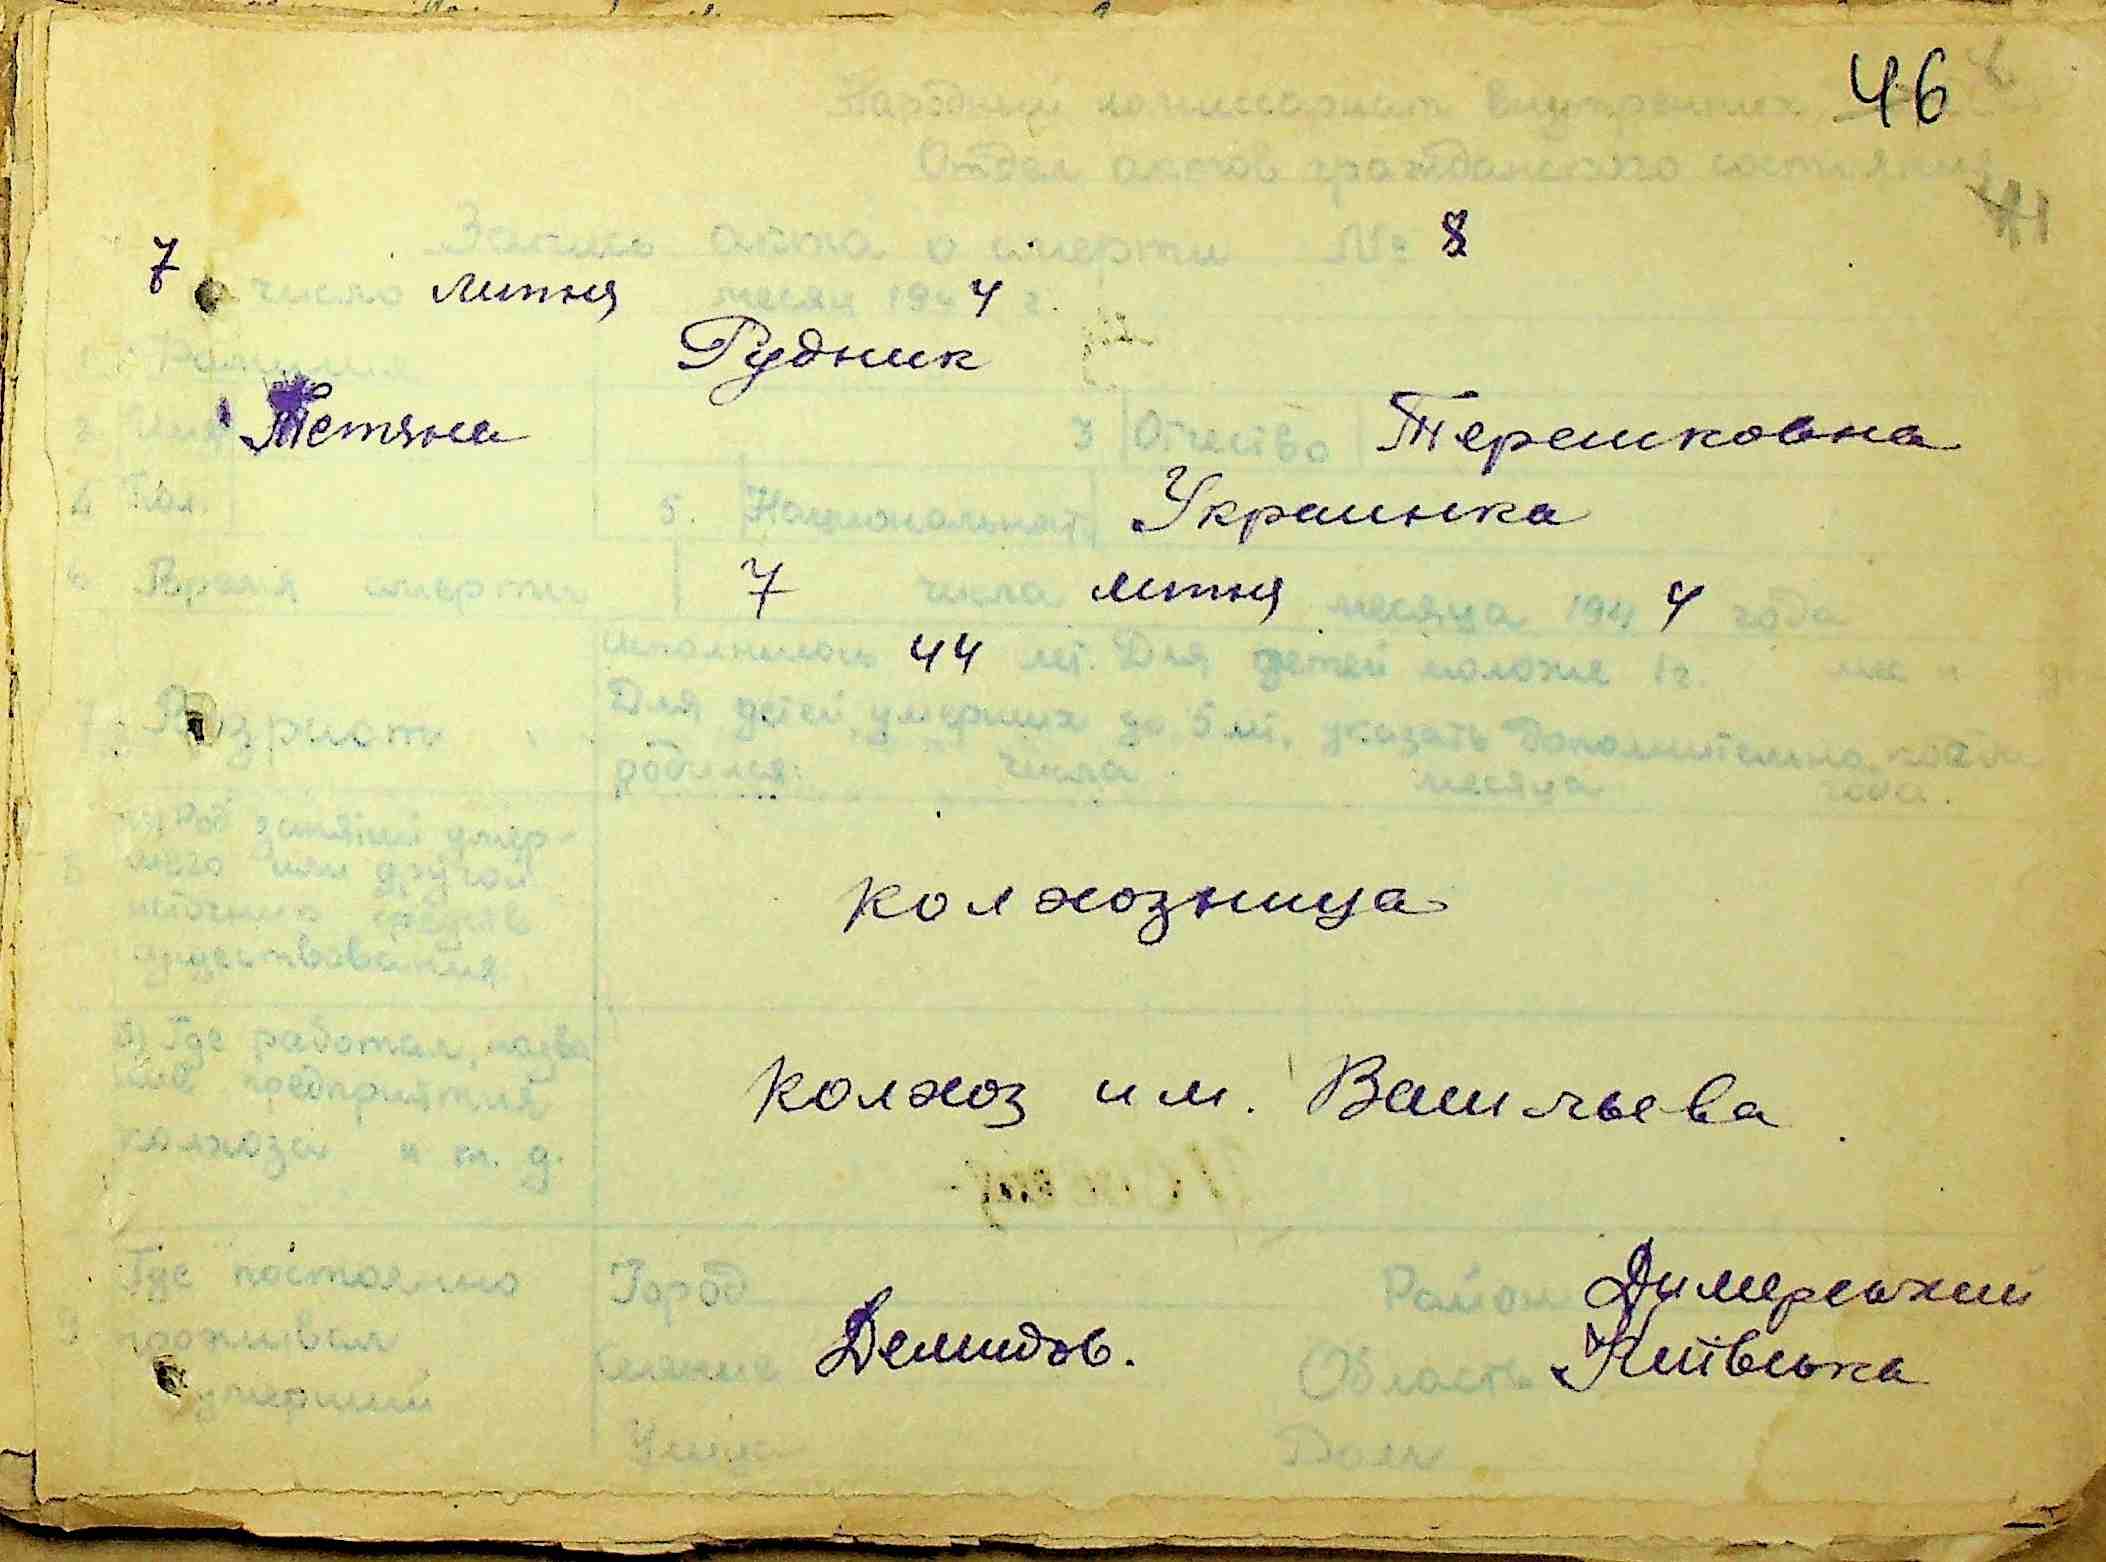 46
41
Народный комиссариат внутренних
Отдел актов гражданского состояния
Запись акта о смерти № 8
7 число липня месяц 1944 г.
1 Фамилия Рудник
2 Имя Тетяна 3 Отчество Терешковна
4 Пол. 5. Национальност. Украинка
6 Время смерти 7 числа липня месяца 1944 года
7 Возраст Исполнилось 44 лет. Для детей моложе 1г. мес и
Для детей, умерших до 5 лет, указать дополнительно, когда
родился: числа месяца года.
8 а) Род занятий умер-
шего или другой
источник средств
существования
колхозница
б) Где работал, назва
ние предприятия
колхоза и т. д.
колхоз им. Васильева.
9 Где постоянно
проживал
умерший
Город Район Димерський
Селение Демидов. Область Київська
Улица Дом